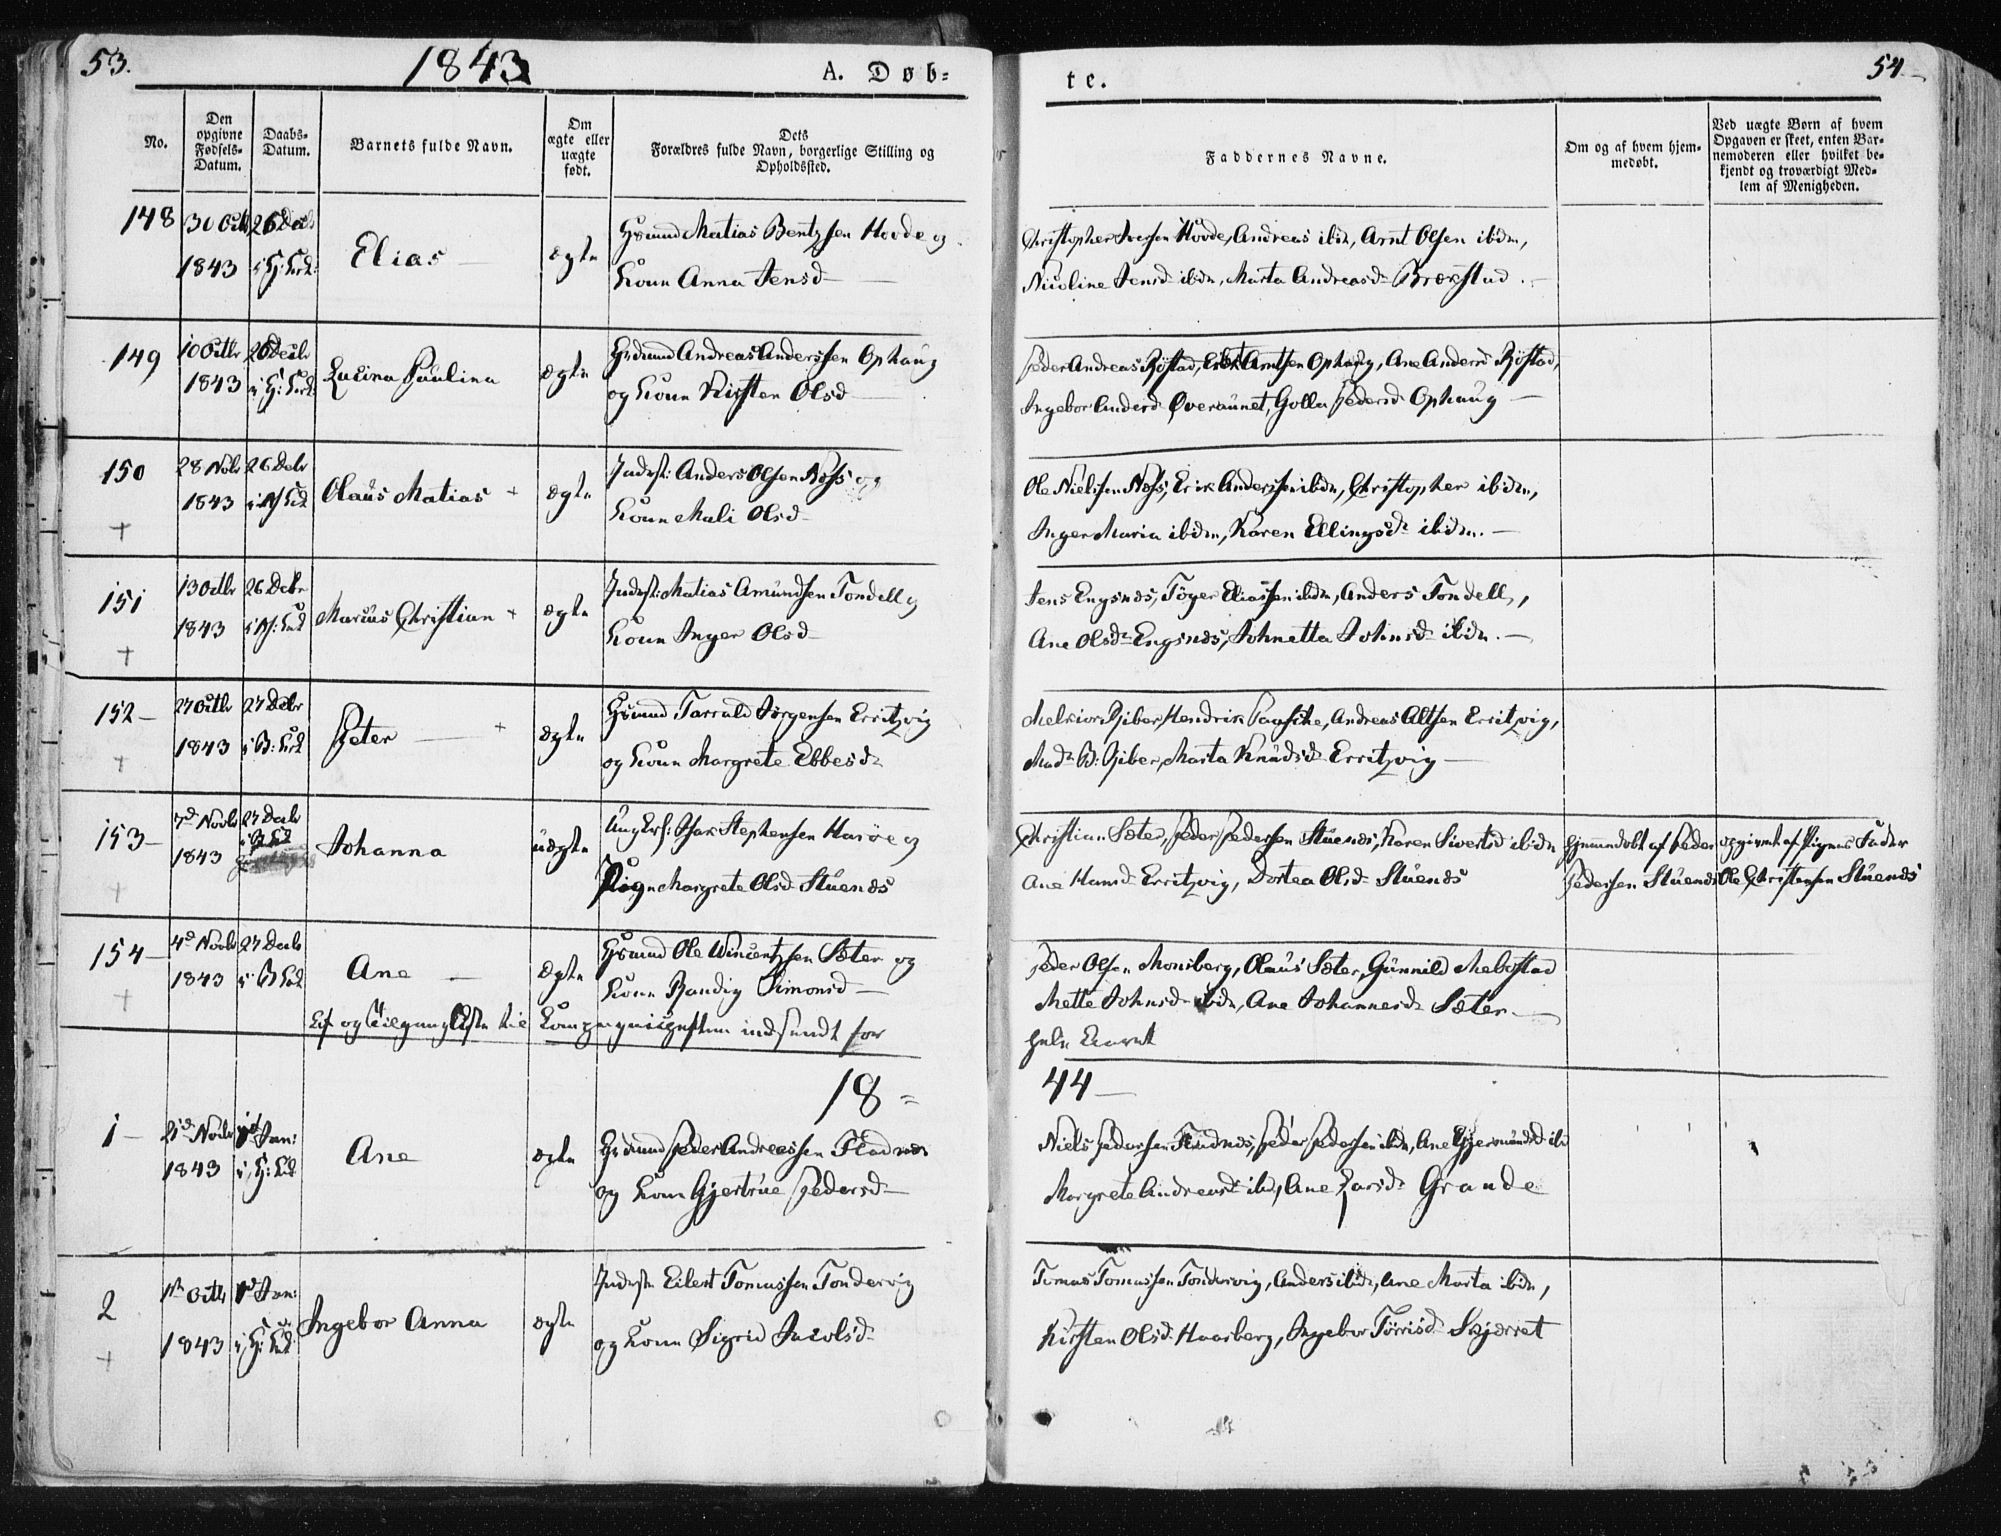 53.
1843
A. Døb=
te.
54
No.
Den opgivne Fødsels-Datum.
Daabs-Datum.
Barnets fulde Navn.
Om ægte eller uægte født.
Dets Forældres fulde Navn, borgerlige Stilling og Opholdssted.
Faddernes Navne.
Om og af hvem hjem-medøbt.
Ved uægte Børn af hvem Opgaven er skeet, enten Bar-nemoderen eller hvilket be-kjendt og troværdigt Med-lem af Menigheden.
148
30 Octb 26 Decb
1843
Elias
ægte
Gdmand Matias Bentzsen Hovde og
Kone Anna Jensd
Christopher Iversen Hovde, Andreas ibdm, Arnt Olsen ibdm,
Nicoline Jensd ibdm, Marta Andreasd Brækstad
149
10 Octbr 26 Decbr
1843
Lucina Paulina
ægte
Gdmand Andreas Anderssen Ophaug
og Kone Kirsten Olsd
Peder Andreas Røstad, Arntsen Ophaug, Ane Andersd Røstad,
Ingebor Andersd Øveraunet, Golla Pedersd Ophaug
150
28 Nobr 26 Debr
1843
Olaus Matias +
ægte
Inderst: Anders Olsen Næss og
Kone Mali Olsd
Ole Nielssen Næss, Erik Anderssen ibdm, Christopher ibdm,
Inger Maria ibdm, Karen Ellingsdr ibdm.
+
151
13 Octbr 26 Debr
1843
Marius Christian +
ægte
Inderst: Matias Amundsen Tondell og
Kone Inger Olsd
Jens Engsnæs, Töger Eliassen ibdm, Anders Tondell,
Ane Olsdr Engsnæs, Johnetta Johnsd ibdm.
+
152
27 Octbr 27 Debr
1843
Peter +
ægte
Gdmand Tarrald Jörgensen Erritzvig
og Kone Margrete Ebbesd
Melkior Riber, Hendrik Paasche, Andreas Altsen Erritzvig,
Mad B: Riber, Marta Knudsd Erritzvig
+
153
7d Novbr 27 Decbr
1843
Johanna
uægte
Ung Isak Stephensen Harøe og
Pige Margrete Olsd Stuenæs
Christian Sæter, Peder Pederssen Stuenæs, Karen Sivertsd ibdm
Ane Hansd Erritzvig, Dortea Olsd Stuenæs
hjemmedøbt af Peder
Pederssen Stuenæs
opgivet af Pigens Fader
Ole Christensen Stuenæs
+
154
4d Novbr 27 Decbr
1843
Ane
ægte
Gdmand Ole Wincentzsen Sæter og
Kone Randig Simonsd
Peder Olsen Monsberg, Olaus Sæter, Gunnild Mebostad
Mette Johnsd ibdm, Ane Johannesd Sæter
+
og Tilgang Liste til Compagnichefen indsendt for
hele Aaret
18=
44
1
21d Novbr 1d Jan:
1843
Ane
ægte
Gdmand Peder Andreassen Fladnæs
og Kone Gjertrue Pedersd
Niels Pederssen Fladnæs, Peder Pederssen ibdm, Ane Gjermundsd ib
Margrete Andreasd ibd, Ane Larsd Grande
2
1ste Octb 1d Jan:
1843
Ingebor Anna
ægte
Inderste Eilert Tomassen Tondervig
og Kone Sigrid Jacobsd
Tomas Tomassen Tondervig, Anders ibdm, Ane Marta ibdm,
Kirsten Olsd Haarberg, Ingebor Torrisd Skjærret
+